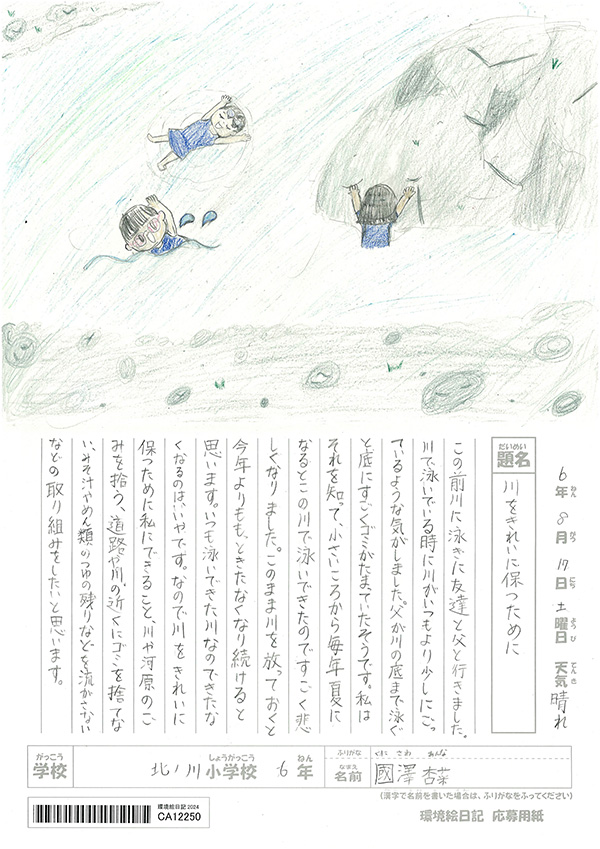 6年 8月 17日 土曜日 天気 晴れ
ねん がつ にち ようび てんき
だいめい
題名
川をきれいに保つために
この前川に泳ぎに友達と父と行きました。
川で泳いでいる時に川がいつもより少しにごっ
ているような気がしました。父が川の底まで泳ぐ
と底にすごくゴミがたまっていたそうです。私は
それを知って、小さいころから毎年夏に
なるとこの川で泳いできたのですごく悲
しくなりました。このまま川を放っておくと
今年よりももっときたなくなり続けると
思います。いつも泳いできた川なのできたな
くなるのはいやです。なので川をきれいに
保つために私にできること、川や河原のご
みを拾う、道路や川の近くにゴミを捨てな
い、みそ汁やめん類のつゆの残りなどを流がさない
などの取り組みをしたいと思います。
がっこう
学校
しょうがっこう ねん
北ノ川小学校 6年
ふりがな くに さわ あんな
なまえ
名前 國澤 杏菜
(漢字で名前を書いた場合は、ふりがなをふってください)
環境絵日記 2024
CA12250
環境絵日記 応募用紙